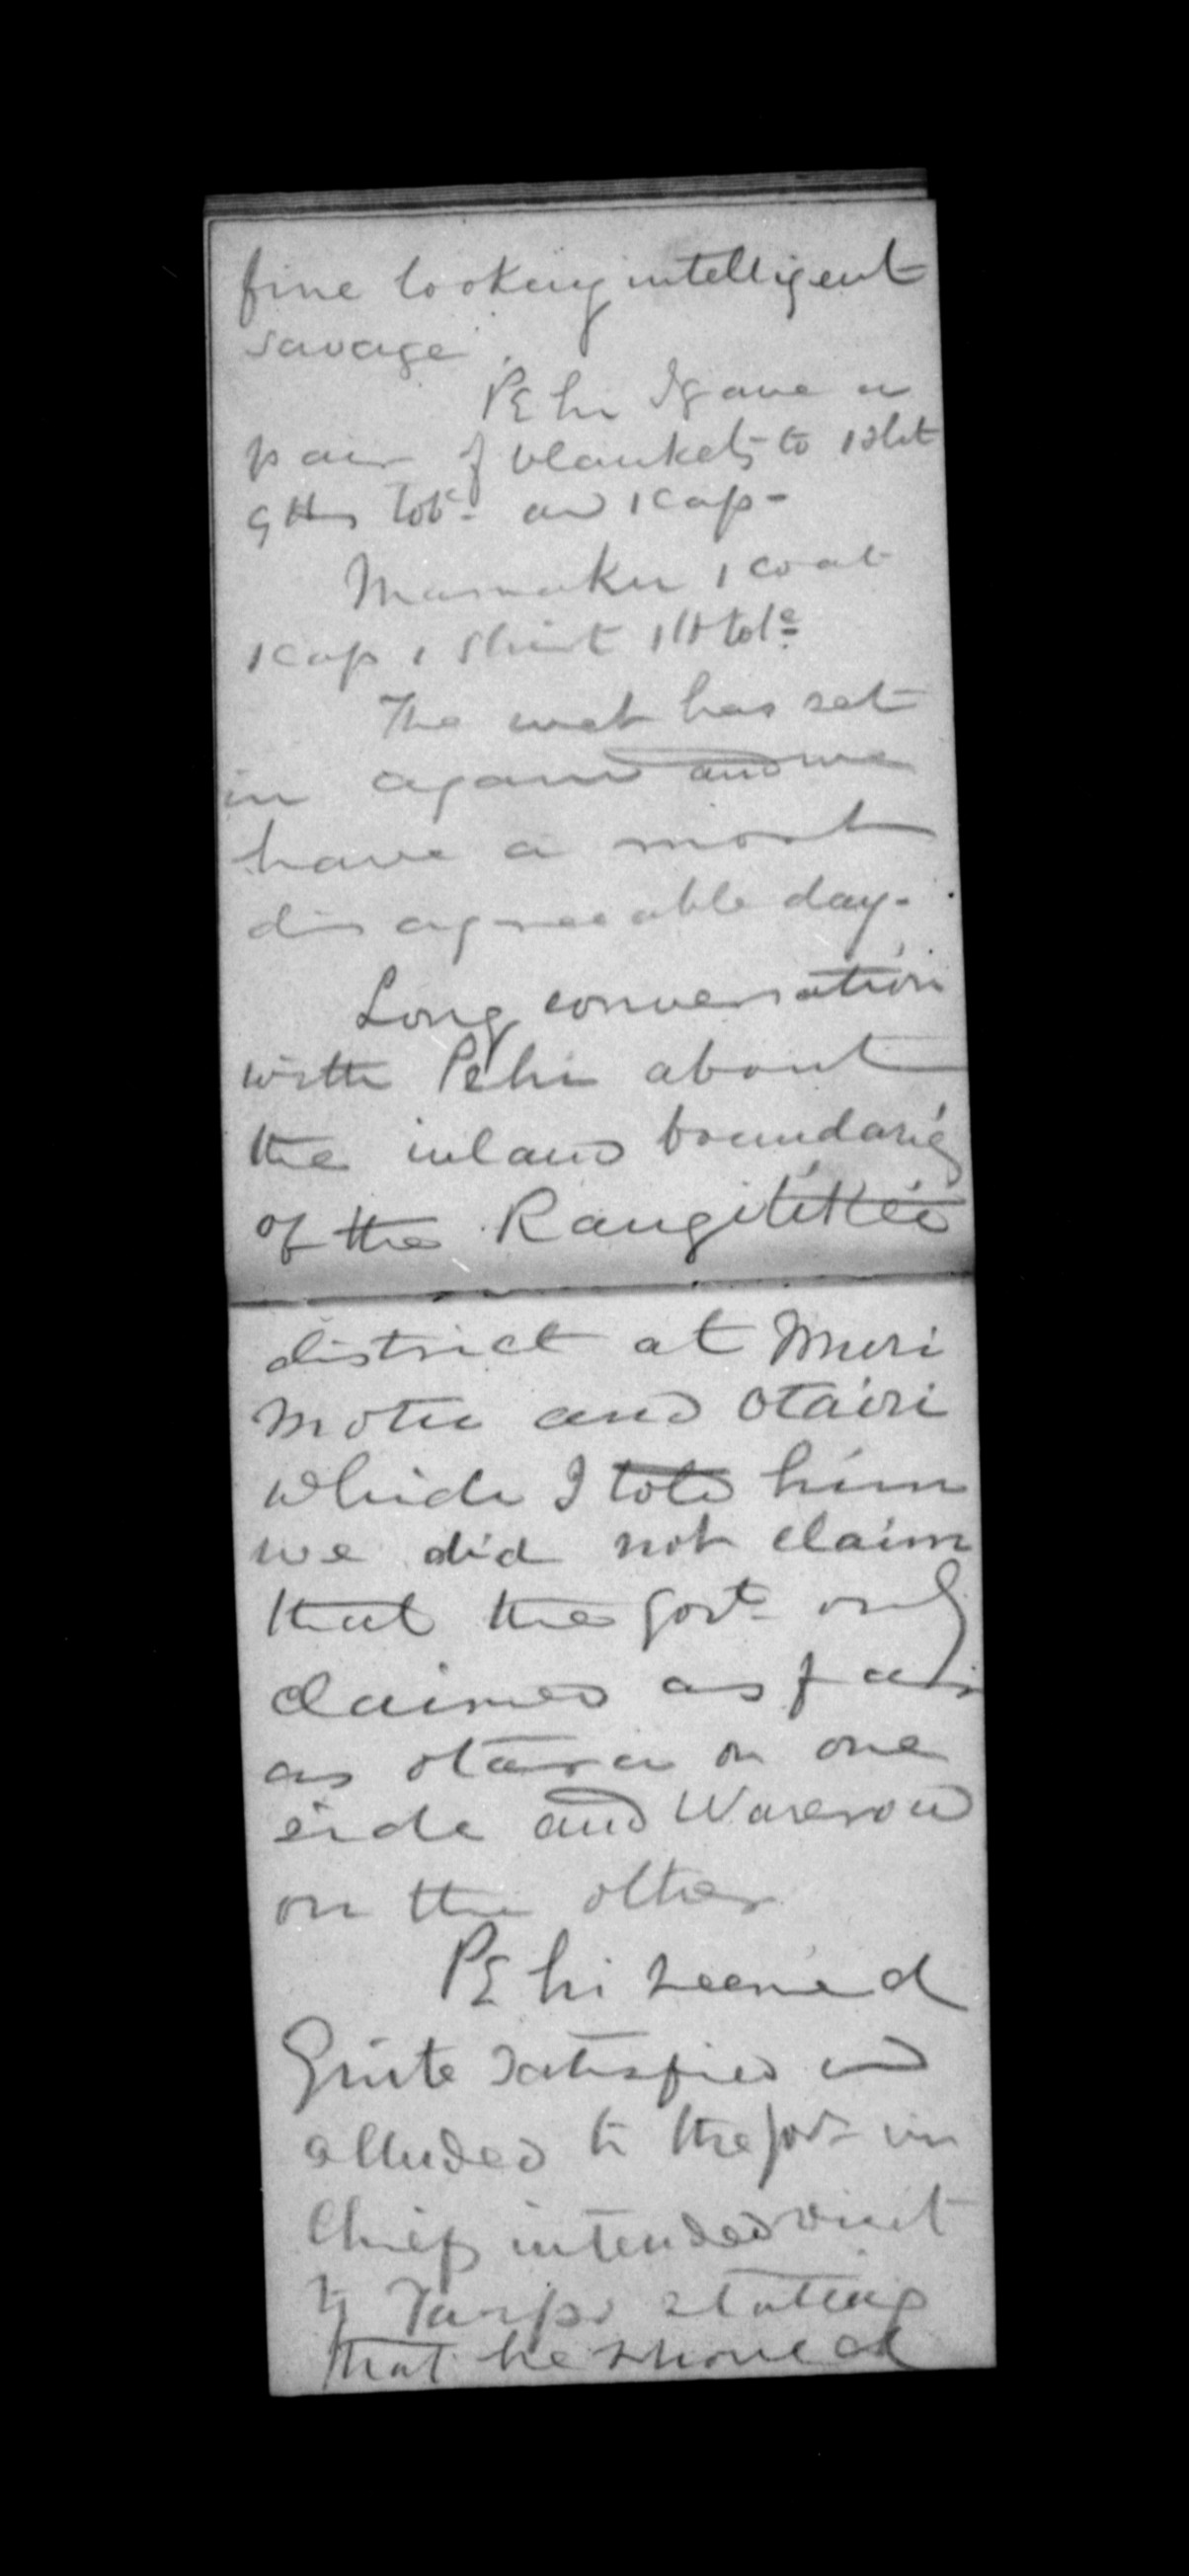 fine looking intelligent
savage.
Pehi I gave a
pair of blankets to 1 sht
9 lbs tobc and 1 cap -
Mamaku 1 coat
1 cap 1 shirt 1 lb tobc
The wet has set
in again and we
have a most
disagreeable day.
Long conversation
with Pehi about
the inland boundaries
of the Rangitikei
district at Muri
Motu and Otairi
which I told him
we did not claim
that the Govt only
claimed as far
as Otara on one
side and Warerou
on the other
Pehi seemed
Quite satisfied and
alluded to the Govr in
Chiefs intended visit
to Taupo stating
that he should